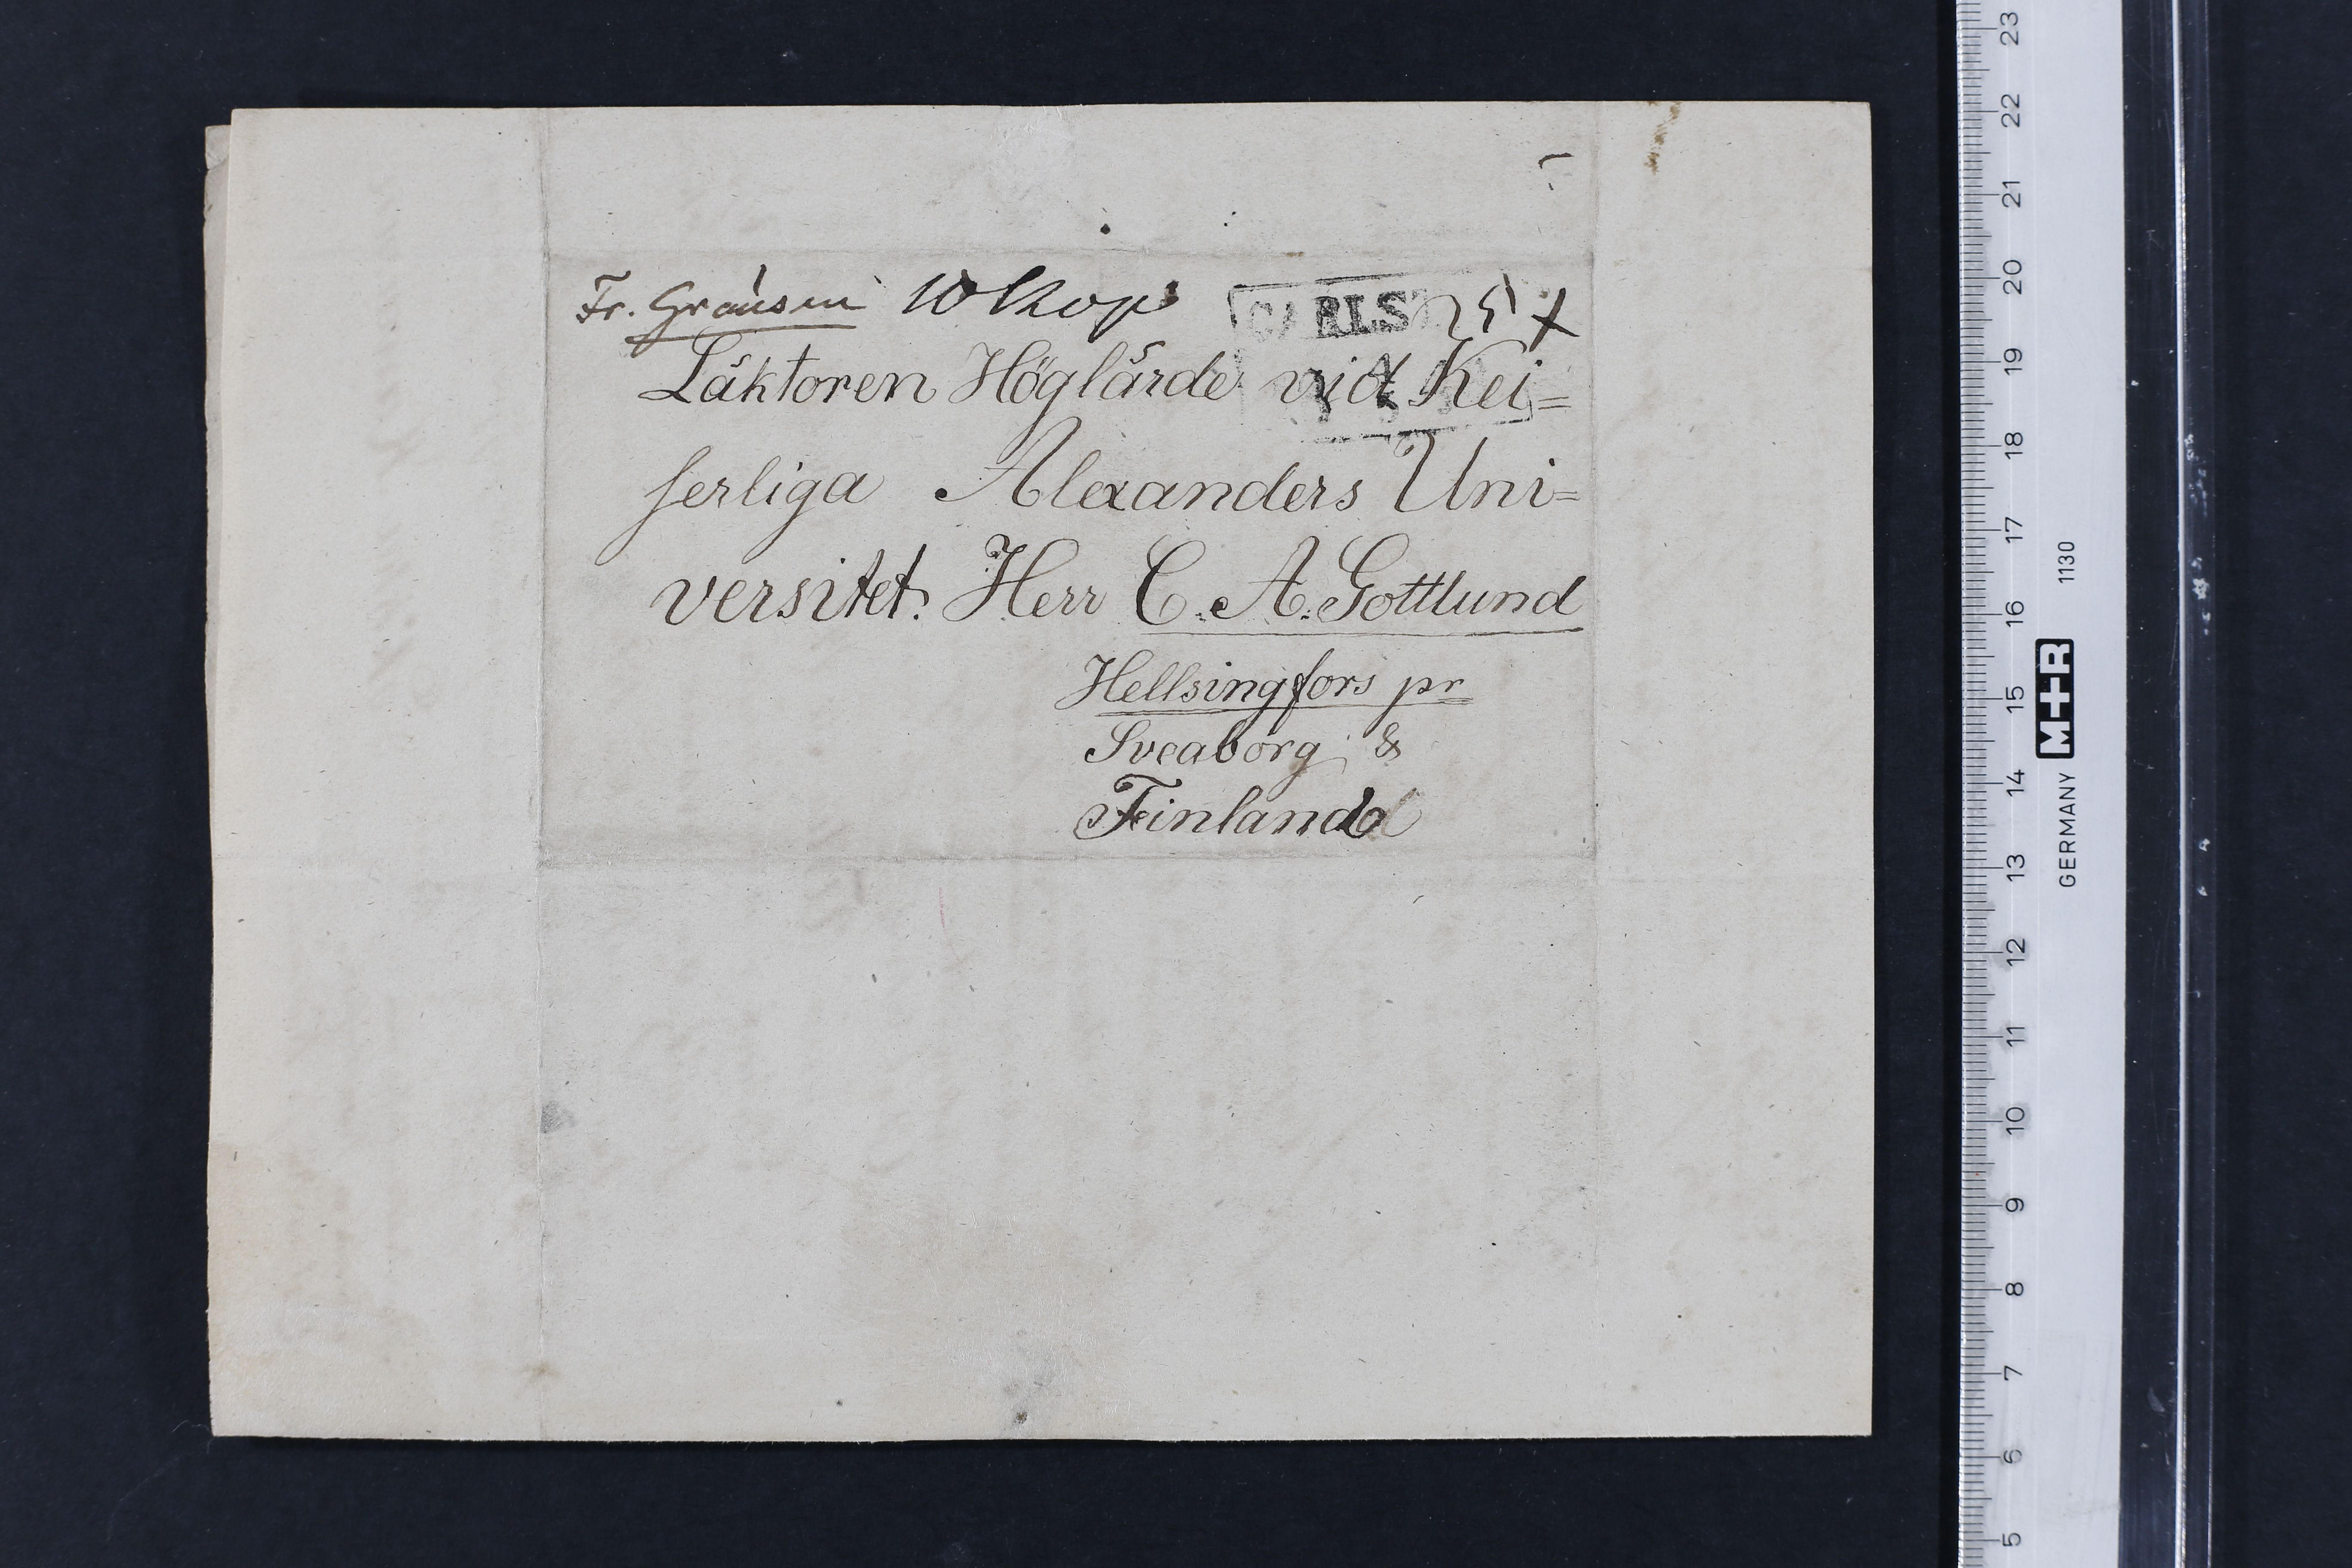 Fr. Gränsen 10 Kop
CARLST
25
Läktoren Höglärde vid Kei=
serliga Alexanders Uni=
versitet. Herr C. A. Gottlund
Hellsingfors pr
Sveaborg &
Finland
23
22
21
20
19
18
17
16
15
14
13
12
11
10
9
8
7
6
5
GERMANY M+R 1130